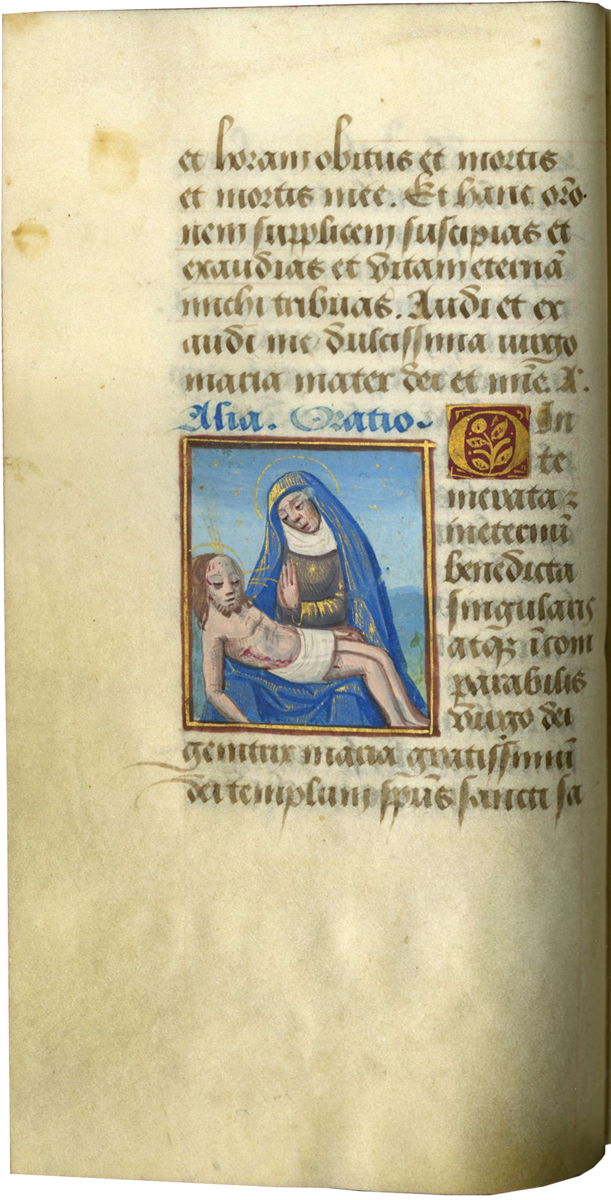 et horam obitus et mortis
et mortis mee. Et hanc orõ
nem supplicem suscipias et
exaudias et vitam eternã
michi tribuas. Audi et ex
audi me dulcissima uirgo
maria mater dei et mie. A.
Alia. Oratio.
O In
te
merata ꝛ
in eternũ
benedicta
singularis
atqꝫ ĩcom
parabilis
virgo dei
genitrix maria gratissimũ
dei templum spũs sancti sa